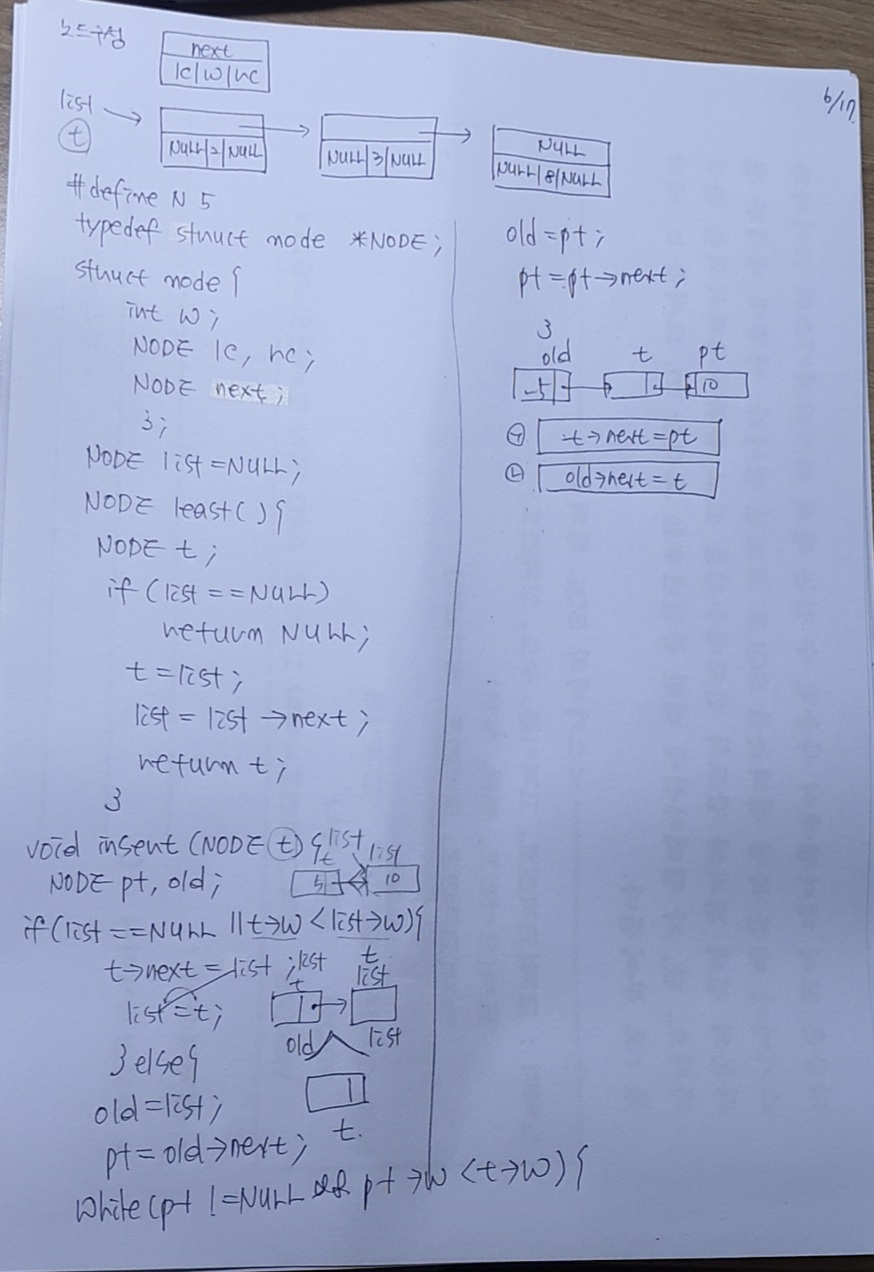 노드구성
next
lc|w|rc
6/17
list
t
NULL|2|NULL
NULL|3|NULL
NULL
NULL|8|NULL
#define N 5
typedef struct node *NODE;
struct node {
int w;
NODE lc, rc;
NODE next;
};
NODE list=NULL;
NODE least() {
NODE t;
if (list ==NULL)
return NULL;
t=list;
list = list →next;
return t;
}
void insert (NODE t) {
list
t
list
5
10
NODE pt, old;
if(list ==NULL || t→w < list→w){
t→next = list;
list
t
t
list
list=t;
old
list
} else {
old=list;
t
pt= old→next;
while (pt !=NULL && pt →w < t→w) {
old=pt;
pt=pt→next;
}
old t pt
5
10
㉠ t→next=pt
㉡ old→next= t